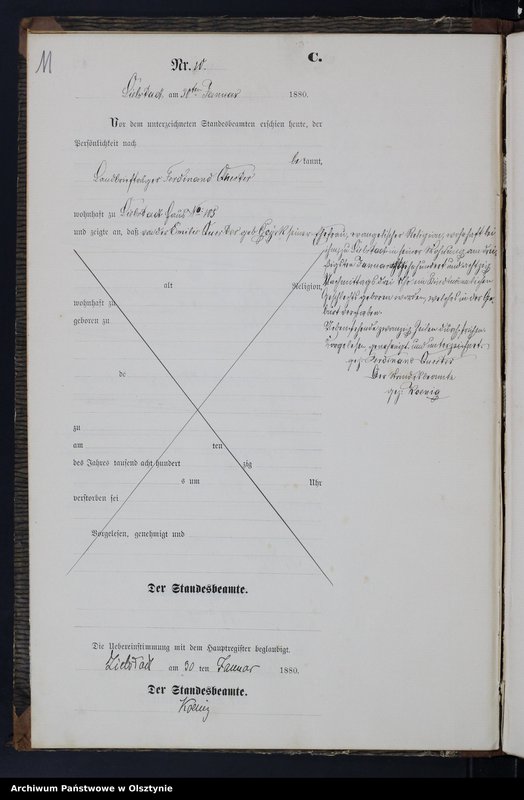 11
C.
Nr. 10.
Liebstadt, am 30ten Januar 1880.
Vor dem unterzeichneten Standesbeamten erschien heute, der
Persönlichkeit nach
be kannt,
Landbriefträger Ferdinand
wohnhaft zu Liebstadt Haus No. 105
und zeigte an, daß von der Emilie geb. seiner Ehefrau, evangelischer Religion, wohnhaft bei
ihm zu Liebstadt in seiner Wohnung am drei
ßigsten Januar achtzehnhundert und achtzig
Nachmittags drei Uhr ein Kind männlichen
Geschlechts geboren worden, welches in der Ge
burt verstorben.
Vorstehende zwanzig Zeilen durchstrichen.
Vorgelesen, genehmigt und unterzeichnet.
gez. Ferdinand
Der Standesbeamte
gez. Koenig
alt Religion,
wohnhaft zu
geboren zu
de
zu
am ten
des Jahres tausend acht hundert zig
s um Uhr
verstorben sei
Vorgelesen, genehmigt und
Der Standesbeamte.
Die Uebereinstimmung mit dem Hauptregister beglaubigt.
Liebstadt am 30 ten Januar 1880.
Der Standesbeamte.
Koenig
Archiwum Państwowe w Olsztynie